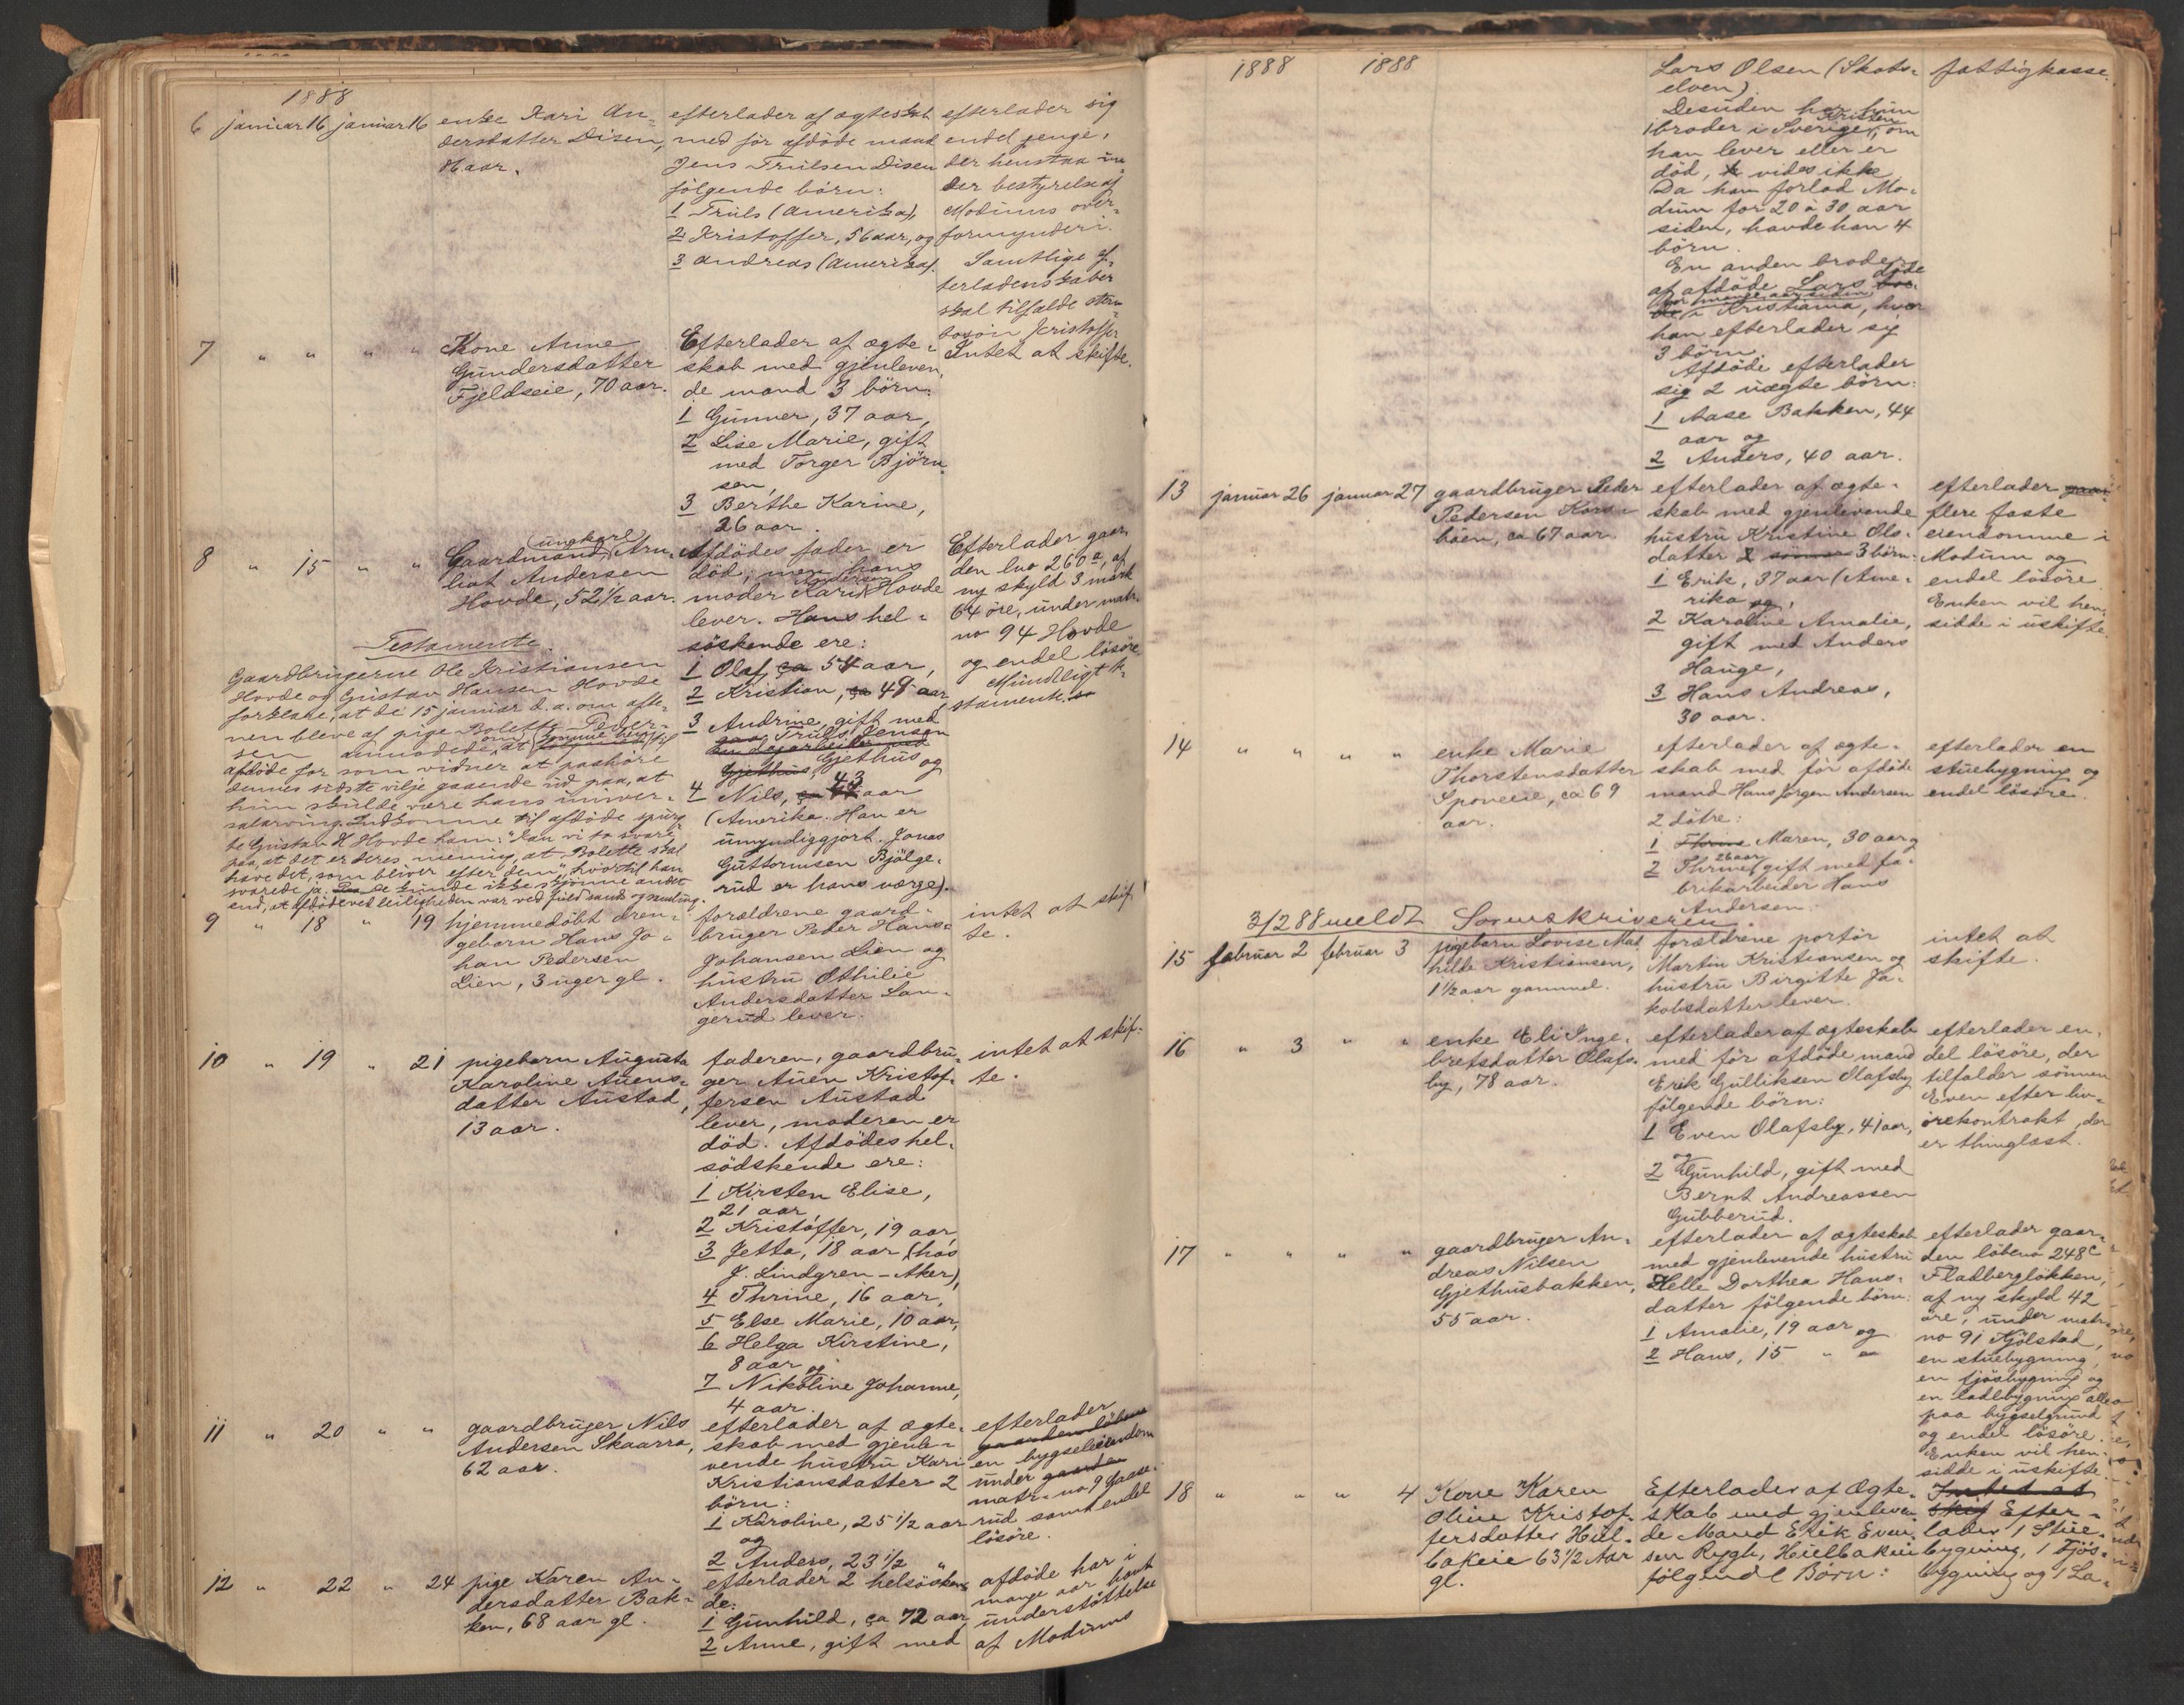 1888
6 januar 16 januar 16
enke Kari An-
dersdatter Disen,
aar.
efterlader af ægteskab
med för afdöde mand
Jens Trulsen Disen
følgende börn:
1 Truls (Amerika),
2 Kristoffer, 56 aar, og
3 Andreas (Amerika).
efterlader sig
endel penge,
der henstaa un-
der bestyrelse af
Modums over-
formynderi.
Samtlige ef-
terladenskaber
skal tilfalde
Kristoffer
7 " " " "
Kone Anne
Gundersdatter
Fjeldseie, 70 aar.
Efterlader af ægte-
skab med gjenleven-
de mand 3 börn:
1 Gunner, 37 aar,
2 Lise Marie, gift
med Torger Björn-
sen,
3 Berthe Karine,
26 aar.
Intet at skifte.
8 " 15 " "
(ungkarl)
Gaardmand Arn-
Andersen
Hovde, 52 1/2 aar.
Afdödes fader er
död; men hans
Andersen
moder Kari Hovde
lever. Hans hel-
söskende ere:
1 Olaf, ca 54 aar,
2 Kristian, ca 48 aar,
3 Andrine, gift med
Truls Jensen
Gjethus Gjethus og
4 Nils, ca 43 aar
(Amerika. Han er
umyndiggjort. Jonas
Guttormsen Bjölge-
rud er hans værge).
Efterlader gaar-
den lno 260 a, af
ny skyld 3 mark
64 öre, under matr.
no 94 Hovde
og endel lösöre.
Mundtligt te-
stamente.
Testamente.
Gaardbrugerne Ole Kristiansen
Hovde og Gustav Hansen Hovde
forklare, at de 15 januar d.a. om afte-
nen bleve af pige Bolette Peder-
sen anmodede om at komme hen til
afdöde for som vidner at paahöre
dennes sidste vilje gaaende ud paa, at
hun skulde være hans univer-
salarving. Indkomne til afdöde spurg-
te Gustav H Hovde ham: "Kan vi svare
paa, at det er deres mening, at Bolette skal
have det, som bliver efter dem", hvortil han
svarede ja. De kunde ikke skjönne andet
end, at afdöde ved leiligheden var ved fuld sands og samling.
9 " 18 " 19
hjemmedöbt dren-
gebarn Hans Jo-
han Pedersen
Lien, 3 uger gl.
forældrene gaard-
bruger Peder Hans-
Johansen Lien og
hustru Othilie
Andersdatter Lan-
gerud lever.
intet at skif-
te.
10 " 19 " 21
pigebarn Augusta
Karoline Auens-
datter Austad,
13 aar.
faderen, gaardbru-
ger Auen Kristof-
fersen Austad
lever, moderen er
död. Afdödes hel-
södskende ere:
1 Kirsten Elise,
21 aar,
2 Kristoffer, 19 aar,
3 Jetta, 18 aar (hos
J. Lindgren - Aker),
4 Thrine, 16 aar,
5 Else Marie, 10 aar,
6 Helga Kirstine,
8 aar og
7 Nikoline Johanne,
4 aar.
intet at skif-
te.
11 " 20 " "
gaardbruger Nils
Andersen Skaarra,
62 aar.
efterlader af ægte-
skab med gjenle-
vende hustru Kari
Kristiansdatter 2
börn:
1 Karoline, 25 1/2 aar
og
2 Anders, 23 1/2 "
efterlader
gaarden löbeno
en bygseleiendom
under gaarden
matr. no 9 Gaase-
rud samt endel
lösöre.
12 " 22 " 24
pige Karen An-
dersdatter Bak-
ken, 68 aar gl.
efterlader 2 helsösken-
de:
1 Gunhild, ca 72 aar,
2 Anne, gift med
afdöde har i
mange aar havt
understöttelse
af Modums
1888 1888
Lars Olsen (Skots-
elven).
Desuden har hun
Kristen
1 broder i Sverige, om
han lever eller er
död, vides ikke.
Da han forlod Mo-
dum for 20 à 30 aar
siden, havde han 4
börn.
En anden broder
af afdöde Lars döde
for mange aar siden
i Kristiania, hvor
han efterlader sig
3 börn.
Afdöde efterlader
sig 2 uægte börn:
1 Aase Bakken, 44
aar og
2 Anders, 40 aar.
fattigkasse.
13 januar 26 januar 27
gaardbruger Peder
Pedersen Kors-
böen, ca 67 aar.
efterlader af ægte-
skab med gjenlevende
hustru Kristine Ols-
datter 3 börn:
1 Erik, 37 aar (Ame-
rika og,
2 Karoline Amalie,
gift med Anders
Hauge,
3 Hans Andreas,
30 aar.
efterlader gaar
flere faste
eiendomme i
Modum og
endel lösöre.
Enken vil hen-
sidde i uskifte.
14 " " " "
enke Marie
Thorstensdatter
Sponeeie, ca 69
aar.
efterlader af ægte-
skab med för afdöde
mand Hans Jörgen Andersen
2 dötre:
1 Thrine Maren, 30 aar og
26 aar
2 Thrine, gift med fa-
brikarbeider Hans
Andersen.
efterlader en
stuebygning og
endel lösöre.
3/2 88 meldt Sorenskriveren.
15 februar 2 februar 3
pigebarn Lovise Mat-
hilde Kristiansen,
1 1/2 aar gammel.
forældrene portör
Martin Kristiansen og
hustru Birgitte Ja-
kobsdatter lever.
intet at
skifte.
16 " 3 " "
enke Eli Inge-
bretsdatter Olafs-
by, 78 aar.
efterlader af ægteskab
med för afdöde mand
Erik Gulliksen Olafsby
følgende börn:
1 Even Olafsby, 41 aar,
og
2 Gunhild, gift med
Bernt Andreassen
Gubberud.
efterlader en-
del lösöre, der
tilfalder sönnen
Even efter liv-
örekontrakt, der
er thinglæst.
17 " " " "
gaardbruger An-
dreas Nilsen
Gjethusbakken,
55 aar.
efterlader af ægteskab
med gjenlevende hustru
Helle Dorthea Hans-
datter følgende börn:
1 Amalie, 19 aar og
2 Hans, 15 "
efterlader gaar-
den löbeno 248 c
Fladberglökken,
af ny skyld 42
öre, under matr.
no 91 Kjölstad,
en stuebygning,
en fjösbygning og
en ladebygning alle
paa bygselgrund
og endel lösöre.
Enken vil hen-
sidde i uskifte.
18 " " " 4
Kone Karen
Oline Kristof-
fersdatter Heil-
bakeie 63 1/2 Aar
gl.
Efterlader af Ægte-
skab med gjenleven-
de Mand Erik Even-
sen Rygh, Heilbakeie
følgende Börn:
Intet at
skif Efter-
lader 1 Stue-
bygning, 1 Fjös-
bygning og 1 La-